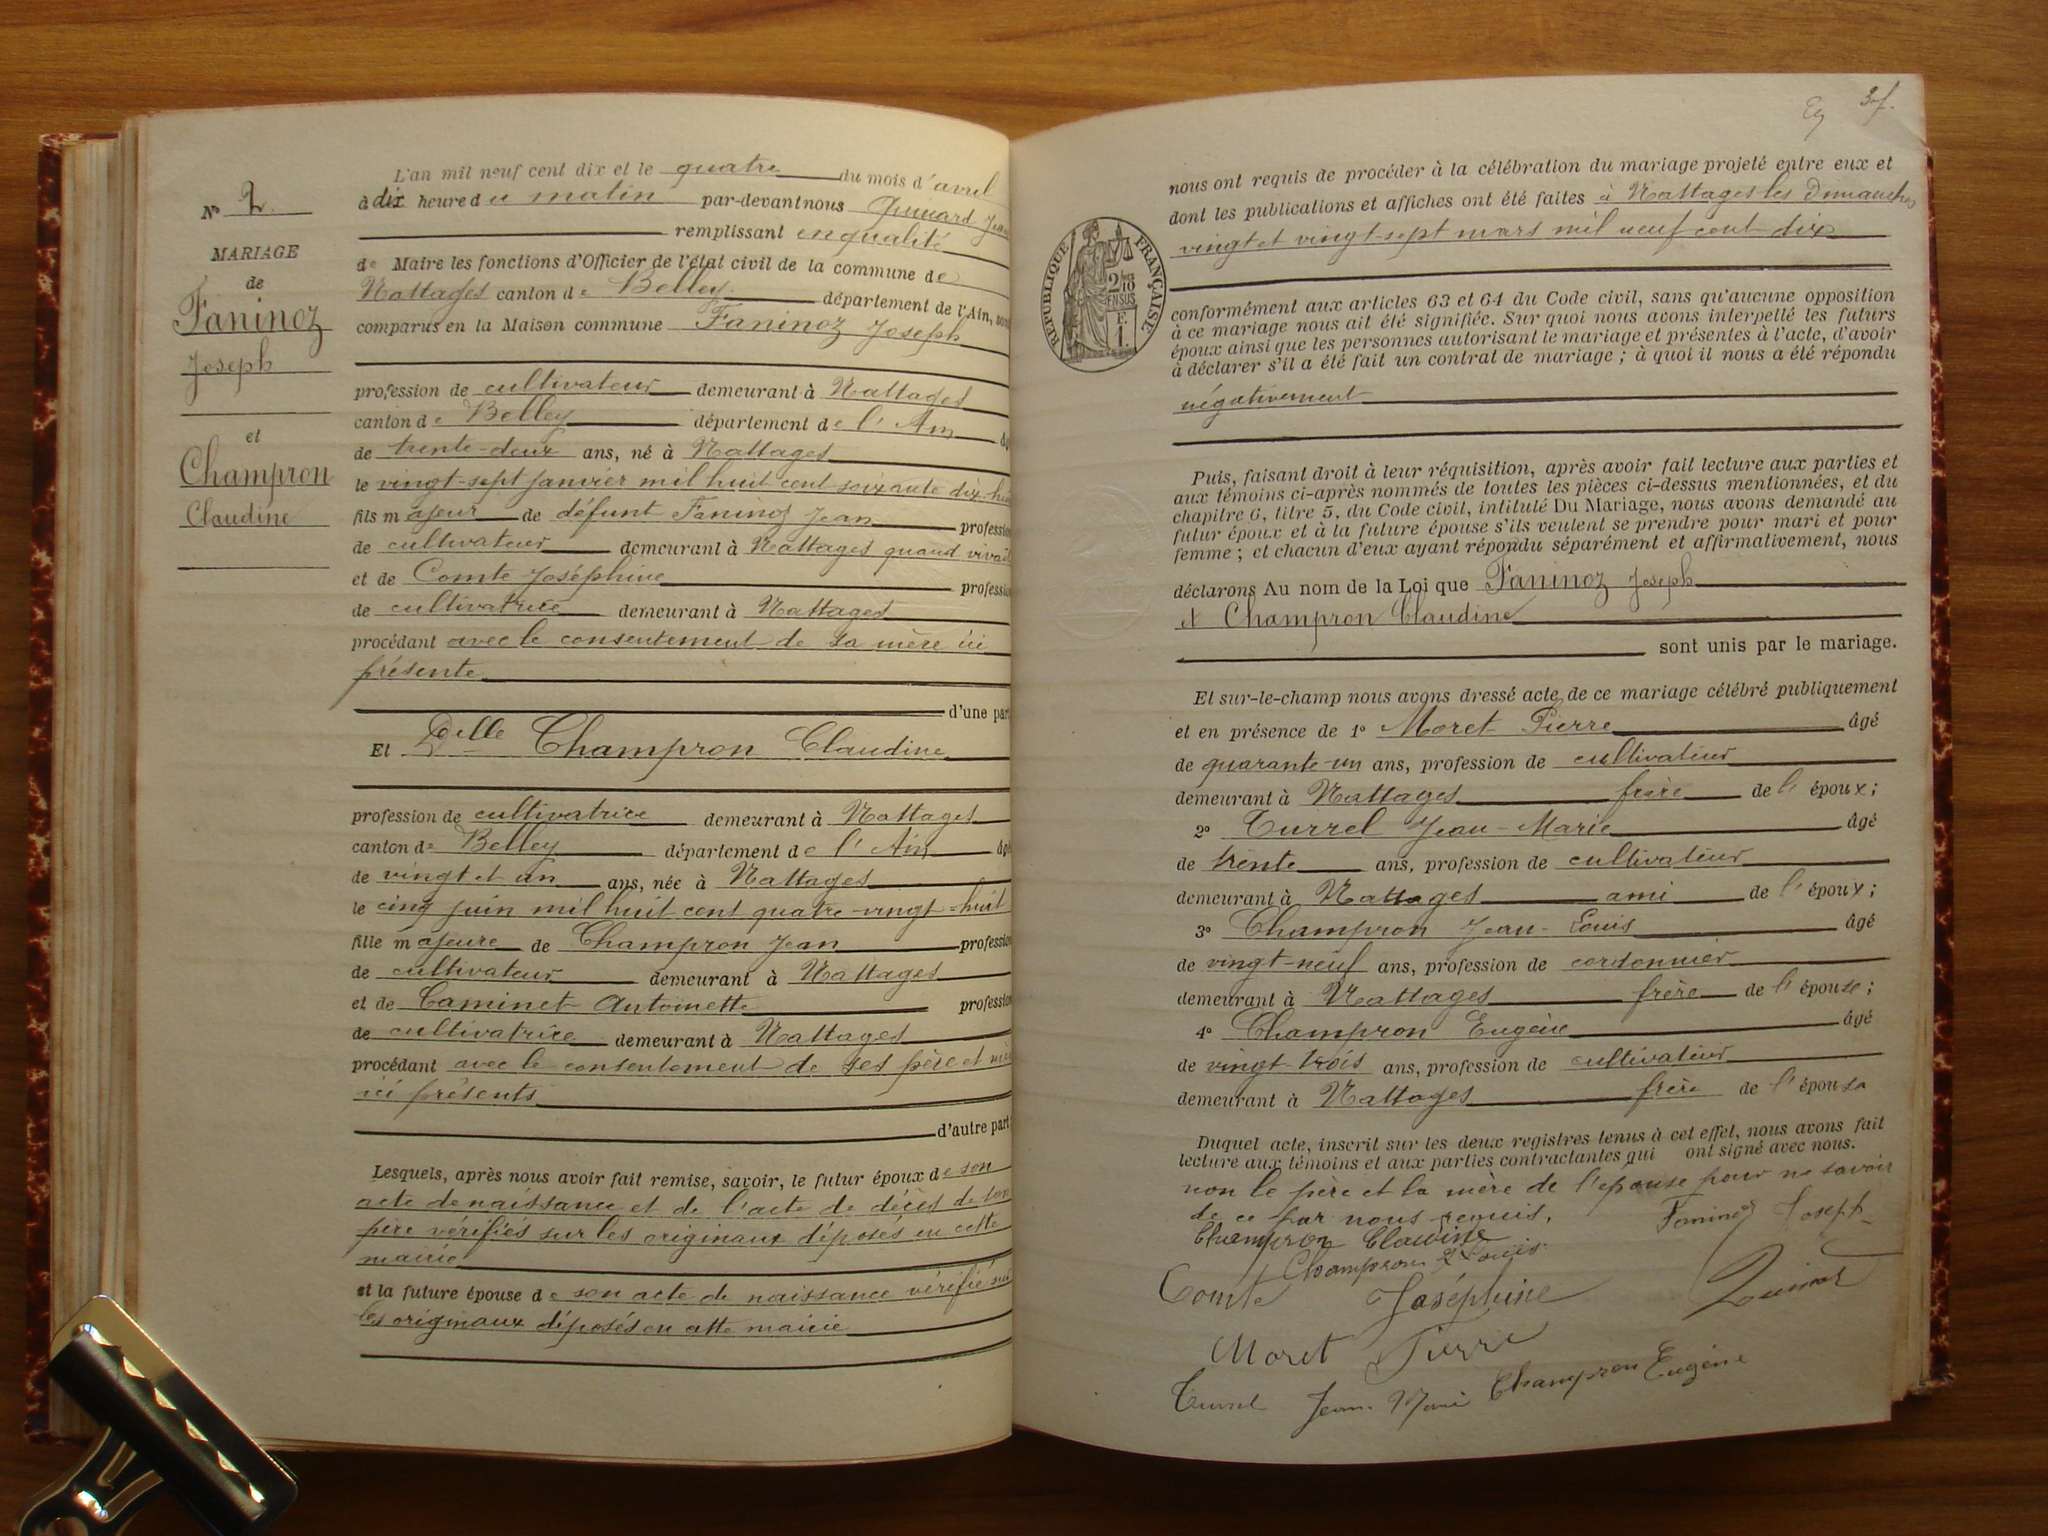 N° 2.
MARIAGE
de
Faninoz
Joseph
et
Champron
Claudine
L'an mil neuf cent dix et le quatre du mois d'avril
à dix heure du matin par-devant nous Guinard Jean
remplissant en qualité
de Maire les fonctions d'Officier de l'état civil de la commune de
Nattages canton de Belley département de l'Ain, sont
comparus en la Maison commune Faninoz Joseph
profession de cultivateur demeurant à Nattages
canton de Belley département de l'Ain âgé
de trente-deux ans, né à Nattages
le vingt-sept janvier mil huit cent soixante dix-huit
fils majeur de défunt Faninoz Jean profession
de cultivateur demeurant à Nattages quand vivait
et de Comte Joséphine profession
de cultivatrice demeurant à Nattages
procédant avec le consentement de sa mère ici
présente
d'une part
Et Delle Champron Claudine
profession de cultivatrice demeurant à Nattages
canton de Belley département de l'Ain âgé
de vingt et un ans, née à Nattages
le cinq juin mil huit cent quatre-vingt-huit
fille majeure de Champron Jean profession
de cultivateur demeurant à Nattages
et de Caminet Antoinette profession
de cultivatrice demeurant à Nattages
procédant avec le consentement de ses père et mère
ici présents
d'autre part
Lesquels, après nous avoir fait remise, savoir, le futur époux de son
acte de naissance et de l'acte de décès de son
père vérifiés sur les originaux déposés en cette
mairie
et la future épouse de son acte de naissance vérifié sur
les originaux déposés en cette mairie
3 f.
nous ont requis de procéder à la célébration du mariage projeté entre eux et
dont les publications et affiches ont été faites à Nattages les dimanches
vingt et vingt-sept mars mil neuf cent dix
RÉPUBLIQUE FRANÇAISE
2/10
EN SUS
F.
1.
conformément aux articles 63 et 64 du Code civil, sans qu'aucune opposition
à ce mariage nous ait été signifiée. Sur quoi nous avons interpellé les futurs
époux ainsi que les personnes autorisant le mariage et présentes à l'acte, d'avoir
à déclarer s'il a été fait un contrat de mariage ; à quoi il nous a été répondu
négativement
Puis, faisant droit à leur réquisition, après avoir fait lecture aux parties et
aux témoins ci-après nommés de toutes les pièces ci-dessus mentionnées, et du
chapitre 6, titre 5, du Code civil, intitulé Du Mariage, nous avons demandé au
futur époux et à la future épouse s'ils veulent se prendre pour mari et pour
femme ; et chacun d'eux ayant répondu séparément et affirmativement, nous
déclarons Au nom de la Loi que Faninoz Joseph
et Champron Claudine
sont unis par le mariage.
Et sur-le-champ nous avons dressé acte de ce mariage célébré publiquement
et en présence de 1° Moret Pierre âgé
de quarante-un ans, profession de cultivateur
demeurant à Nattages frère de l'époux ;
2° Turrel Jean-Marie âgé
de trente ans, profession de cultivateur
demeurant à Nattages ami de l'époux ;
3° Champron Jean-Louis âgé
de vingt-neuf ans, profession de cordonnier
demeurant à Nattages frère de l'épouse ;
4° Champron Eugène âgé
de vingt-trois ans, profession de cultivateur
demeurant à Nattages frère de l'épouse
Duquel acte, inscrit sur les deux registres tenus à cet effet, nous avons fait
lecture aux témoins et aux parties contractantes qui ont signé avec nous.
non le père et la mère de l'épouse pour ne savoir
de ce par nous requis.
Faninoz Joseph
Champron Claudine
Champron Louis
Comte Joséphine
Moret Pierre
Turrel Jean-Marie Champron Eugène